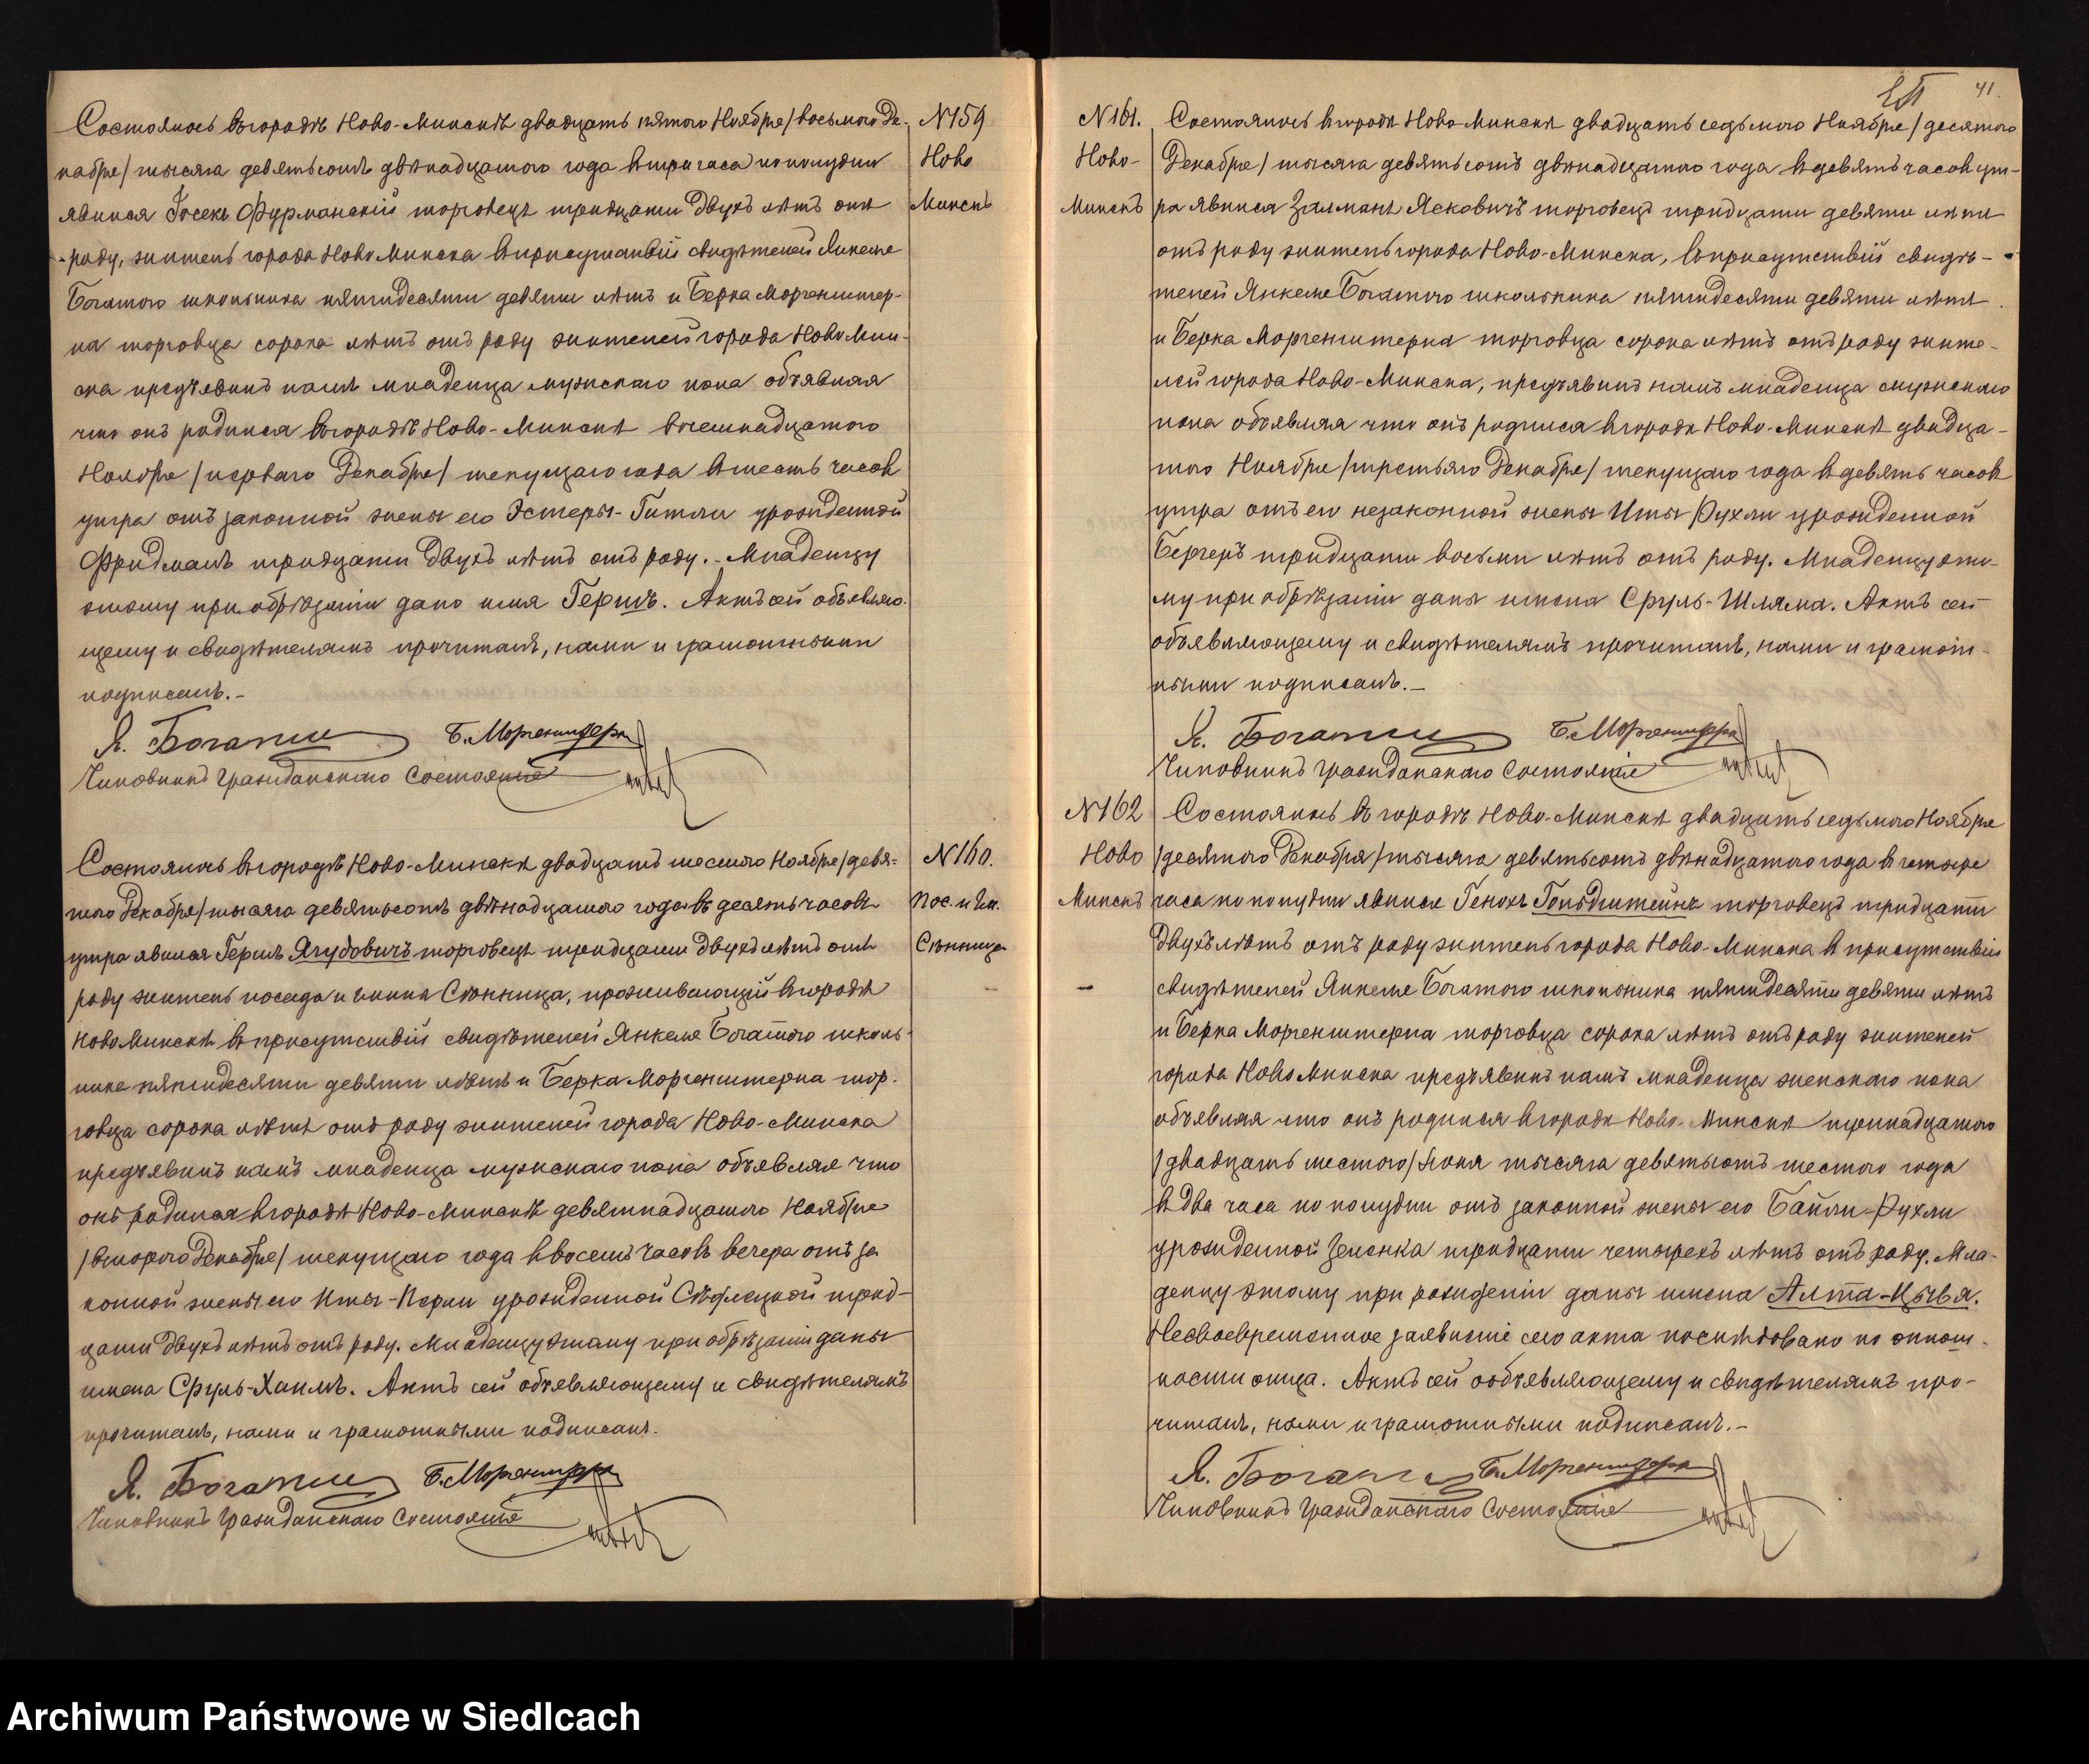 Состоялось въ городѣ Ново-Минскѣ двадцать пятого Ноября /восьмого Де-
кабря/ тысяча девятьсотъ двѣнадцатого года въ три часа по полудни
явился Іосекъ Фурманскій торговецъ тридцати двухъ лѣтъ отъ
роду, житель города Ново Минска въ присутствіи свидѣтелей Янкеля
Богатого школьника пятидесяти девяти лѣтъ и Берка Моргенштер-
на торговца сорока лѣтъ отъ роду жителей города Ново Мин-
ска предъявилъ намъ младенца мужскаго пола объявляя
что онъ родился въ городѣ Ново-Минскѣ
Ноября /перваго Декабря/ текущаго года въ шесть часовъ
утра отъ законной жены его Эстеры-Гитли урожденной
Фридманъ тридцати двухъ лѣтъ отъ роду. - Младенцу
этому при обрѣзаніи дано имя Гершъ. Актъ сей объявляю-
щему и свидѣтелямъ прочитанъ, нами и грамотными
подписанъ. -
Я. Богаты Б. Моргенштерн
Чиновникъ Гражданскаго Состоянія
№159
Ново
Минскъ
Состоялось въ городѣ Ново-Минскѣ двадцать шестого Ноября /девя-
того Декабря/ тысяча девятьсотъ двѣнадцатого года въ десять часовъ
утра явился Гершъ Ягудовичъ торговецъ тридцати двухъ лѣтъ отъ
роду житель посада и гмины Сѣнница, проживающій въ городѣ
Ново Минскѣ въ присутствіи свидѣтелей Янкеля Богатого школь-
ника пятидесяти девяти лѣтъ и Берка Моргенштерна тор-
говца сорока лѣтъ отъ роду жителей города Ново-Минска
предъявилъ намъ младенца мужскаго пола объявляя что
онъ родился въ городѣ Ново-Минскѣ девятнадцатого Ноября
/второго Декабря/ текущаго года въ восемь часовъ вечера отъ за-
конной жены его Иты-Перли урожденной трид-
цати двухъ лѣтъ отъ роду. Младенцу этому при обрѣзаніи даны
имена Сруль-Хаимъ. Актъ сей объявляющему и свидѣтелямъ
прочитанъ, нами и грамотными подписанъ.
Я. Богаты Б. Моргенштерн
Чиновникъ Гражданскаго Состоянія
№160.
Пос. и Гм.
Сѣнница
41.
№161.
Ново-
Минскъ
Состоялось въ городѣ Ново Минскѣ двадцать седьмого Ноября /десятого
Декабря/ тысяча девятьсотъ двѣнадцатого года въ девять часовъ ут-
ра явился Залманъ Ясковичъ торговецъ тридцати девяти лѣтъ
отъ роду житель города Ново-Минска, въ присутствіи свидѣ-
телей Янкеля Богатого школьника пятидесяти девяти лѣтъ
и Берка Моргенштерна торговца сорока лѣтъ отъ роду жите-
лей города Ново-Минска, предъявилъ намъ младенца мужскаго
пола объявляя что онъ родился въ городѣ Ново-Минскѣ двадца-
того Ноября /третьяго Декабря/ текущаго года въ девять часовъ
утра отъ его незаконной жены Иты Рухли урожденной
Бергеръ тридцати восьми лѣтъ отъ роду. Младенцу это-
му при обрѣзаніи даны имена Сруль-Шляма. Актъ сей
объявляющему и свидѣтелямъ прочитанъ, нами и грамот-
ными подписанъ. -
Я. Богаты Б. Моргенштерн
Чиновникъ Гражданскаго Состоянія
№162
Ново
Минскъ
Состоялось въ городѣ Ново-Минскѣ двадцать седьмого Ноября
/десятого Декабря/ тысяча девятьсотъ двѣнадцатого года въ четыре
часа по полудни явился Генохъ Гольдштейнъ торговецъ тридцати
двухъ лѣтъ отъ роду житель города Ново-Минска въ присутствіи
свидѣтелей Янкеля Богатого школьника пятидесяти девяти лѣтъ
и Берка Моргенштерна торговца сорока лѣтъ отъ роду жителей
города Ново Минска предъявилъ намъ младенца женскаго пола
объявляя что онъ родился въ городѣ Ново-Минскѣ тринадцатого
/двадцать шестого/ Іюня тысяча девятьсотъ шестого года
въ два часа по полудни отъ законной жены его Байли-Рухли
урожденной Зеленка тридцати четырехъ лѣтъ отъ роду. Мла-
денцу этому при рожденіи даны имена Алта-Цывя.
Несвоевременное заявленіе сего акта послѣдовало по оплош-
ности отца. Актъ сей объявляющему и свидѣтелямъ про-
читанъ, нами и грамотными подписанъ. -
Я. Богаты Б. Моргенштерн
Чиновникъ Гражданскаго Состоянія
Archiwum Państwowe w Siedlcach